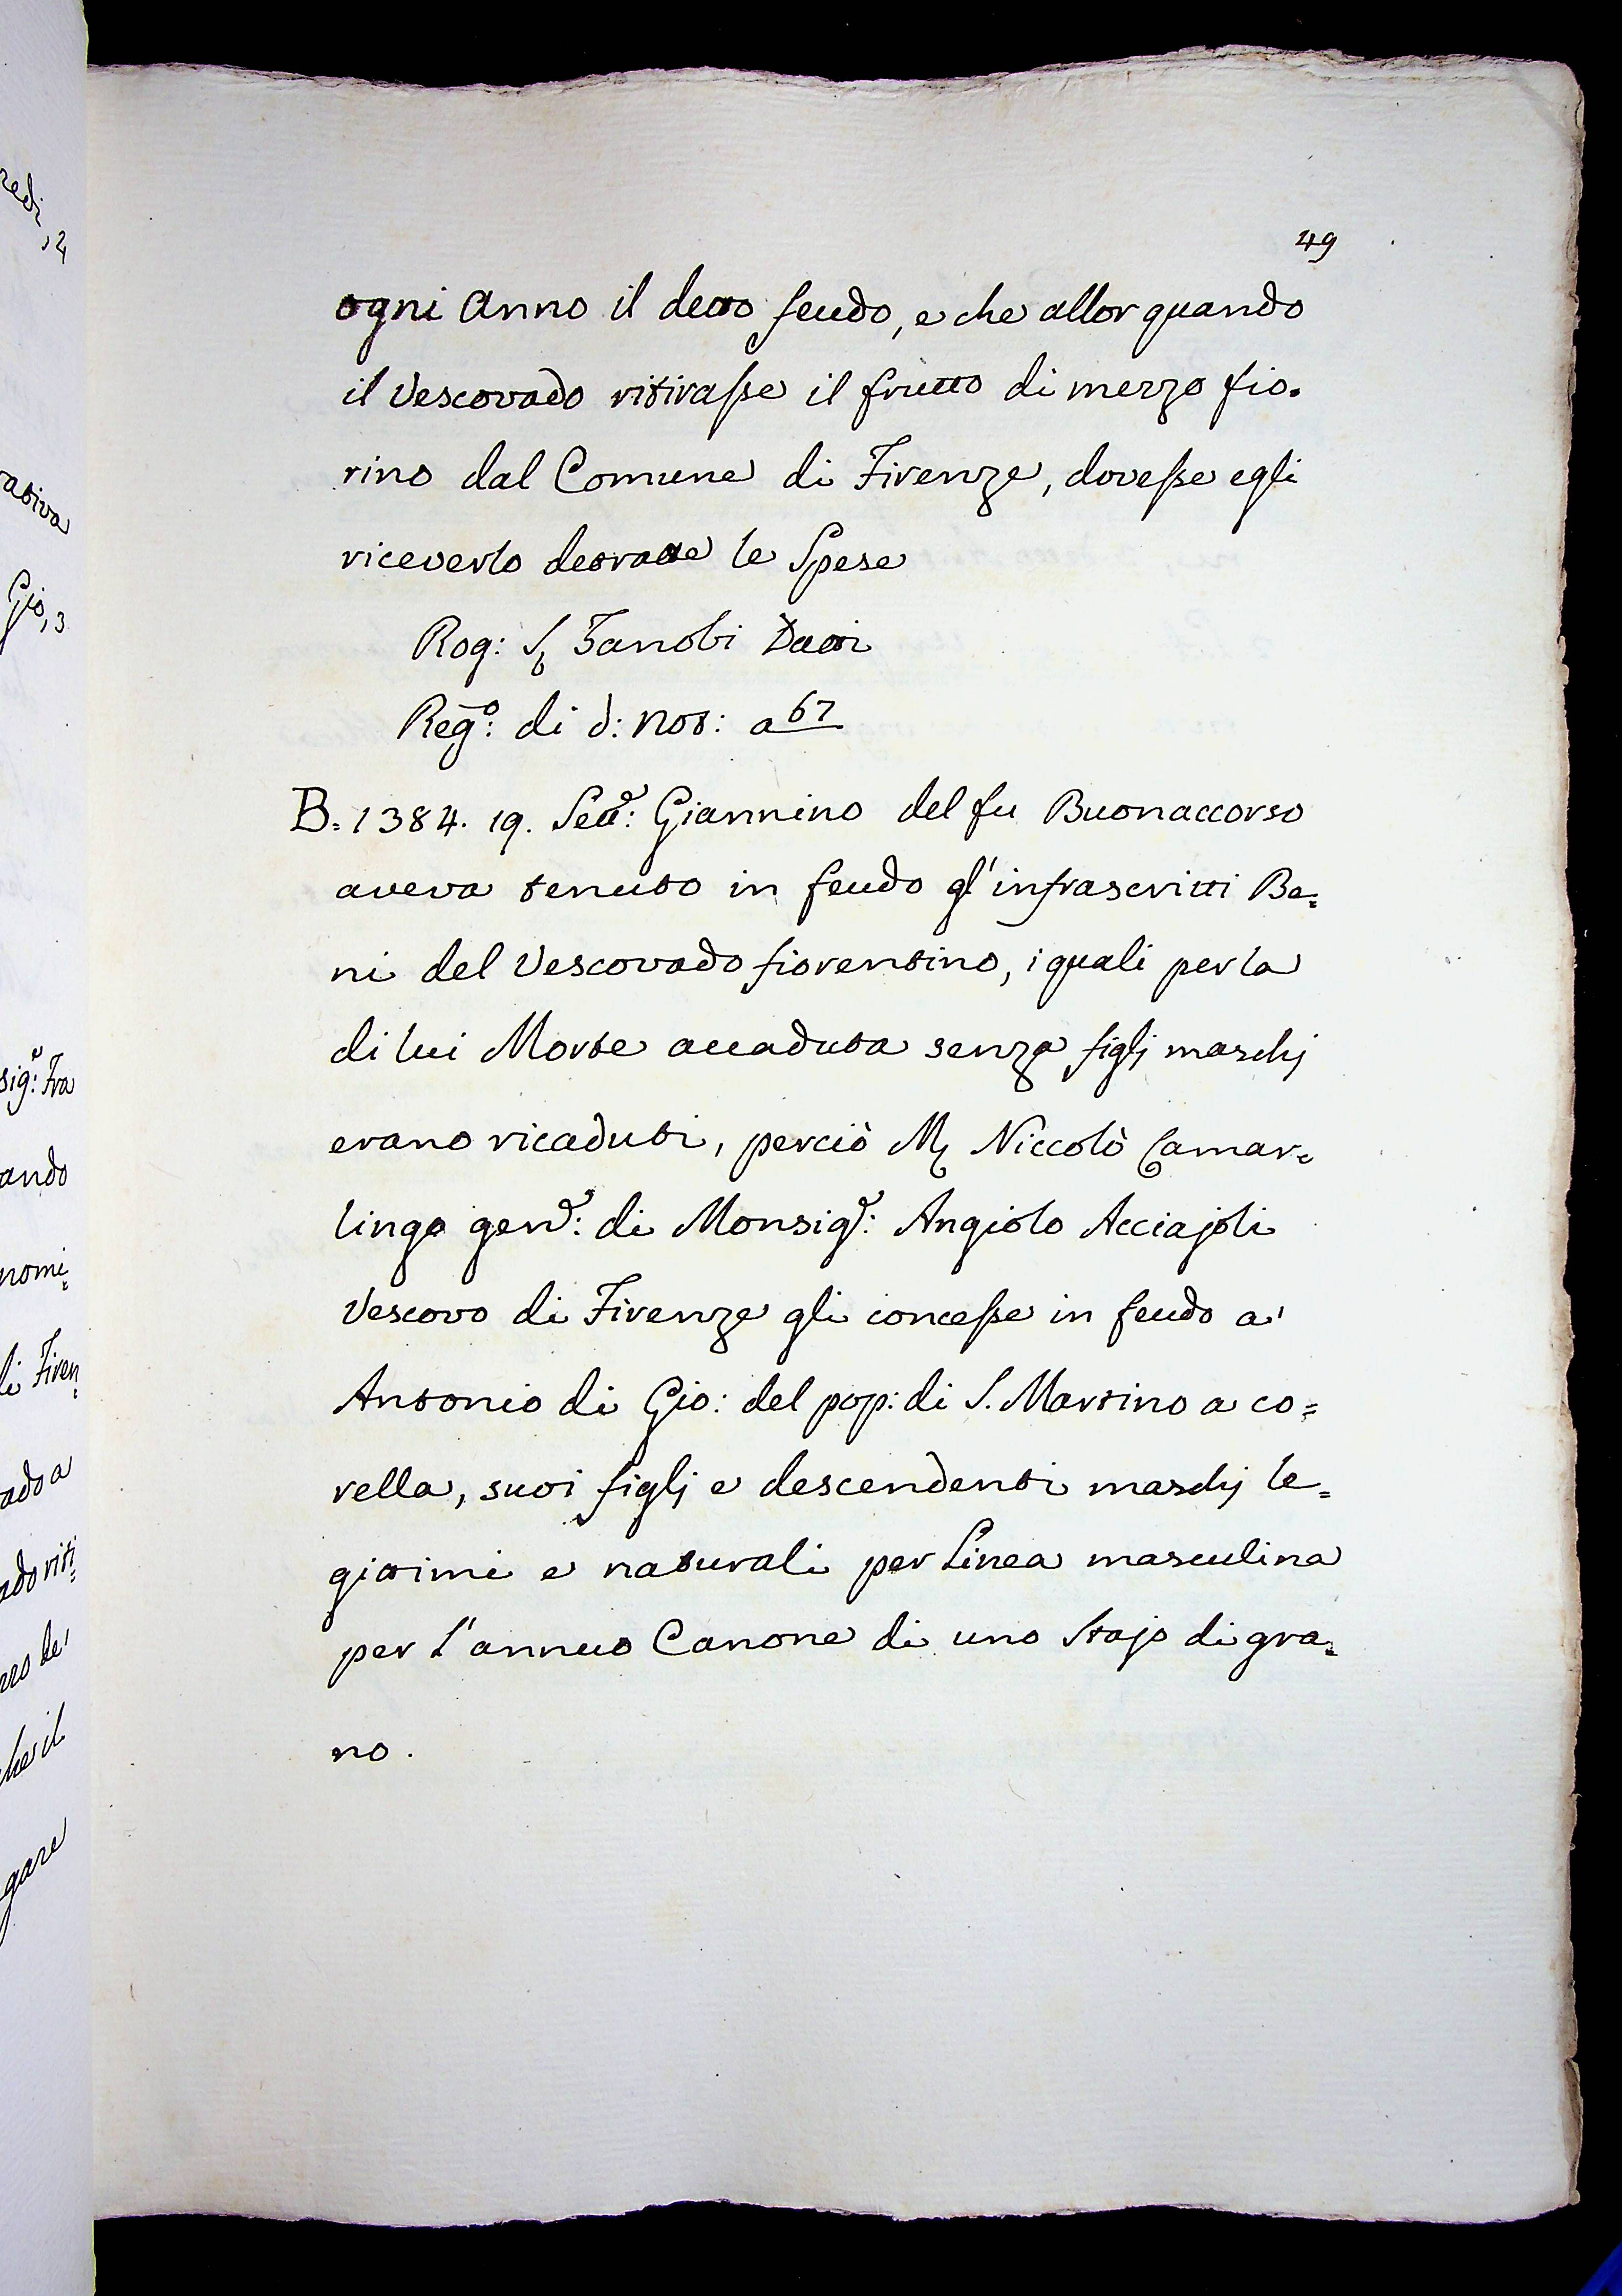 49
ogni Anno il detto feudo, e che allor quando
il Vescovado ritirasse il frutto di mezzo fio=
rino dal Comune di Firenze, dovesse egli
riceverlo detratte le Spese
Rog: S. Zanobi Datti
Reg.o: di d: Not: a 67
B. 1384. 19. Sett.e: Giannino del fu Buonaccorso
aveva tenuto in feudo gl'infrascritti Be=
ni del Vescovado fiorentino, i quali per la
di lui Morte accaduta senza figlj maschj
erano ricaduti, perciò M. Niccolò Camar=
lingo gen.e: di Monsig.e: Angiolo Acciajoli
Vescovo di Firenze gli concesse in feudo a'
Antonio di Gio: del pop: di S. Martino a co=
vella, suoi figlj e descendenti maschj le=
gittimi e naturali per Linea masculina
per l'annuo Canone di uno Stajo di gra=
no.
redi
12
rativa
Gio, 3
sig.e: Fra
ando
nomi=
di Firen=
ado a
ado riti=
zzo de'
che il
gare